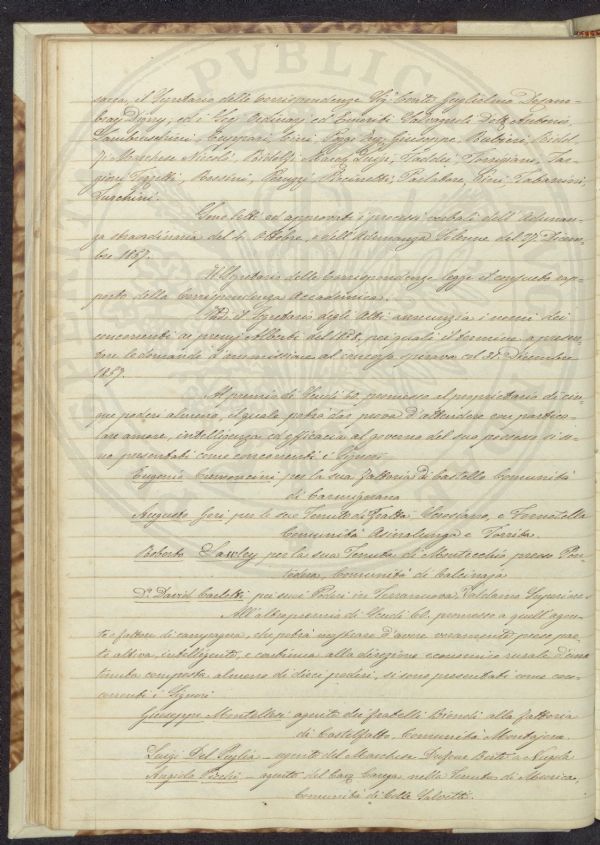 sacca, il Segretario delle Corrispondenze Sig. Conte Guglielmo
Digny, ed i Sig. Ordinari ed Emeriti Salvagnoli Dott. Antonio,
Lambruschini, Cini, Poggi Giuseppe, Rubieri, Ridol-
fi Marchese Niccolò, Ridolfi March. Luigi, Taddei, Torrigiani, Tar-
gioni Tozzetti, Peruzzi, Parlatore, Tabarrini,
Turchini.
Sono letti ed approvati i processi verbali dell'Adunan-
za straordinaria del 4 Ottobre, e dell'Adunanza Solenne del 27 Dicem-
bre 1857.
Il Segretario delle Corrispondenze legge il consueto rap-
porto della Corrispondenza Accademica.
il Segretario degli Atti annunzia i nomi dei
concorrenti ai premj Alberti del 1858, pei quali il termine a presen-
tare le domande d'ammissione al concorso spirava col 31 Dicembre
1857.
Al premio di Scudi 60, promesso al proprietario di cin-
que poderi almeno, il quale potrà dar prova d'attendere con partico-
lare amore, intelligenza, ed efficacia al governo del suo possesso si so-
no presentati come concorrenti i Signori
Eugenio per la sua fattoria di Castello Comunità
di Carmignano
Augusto Gori per le sue Tenute di Fratta e Fornatella
Comunità Asinalunga e Torrita.
Roberto Lawley per la sua Tenuta di Montecchio presso Pon-
tedera, Comunità di Calcinaja
Dr. David Carletti pei suoi Poderi in Terranuova, Valdarno Superiore
All'altro premio di Scudi 60. promesso a quell'agen-
te o fattore di campagna, che potrà mostrare d'avere veramente preso par-
te attiva, intelligente, e continua alla direzione economico rurale d'una
tenuta composta almeno di dieci poderi, si sono presentati come con-
correnti i Signori
Giuseppe Montellori agente dei fratelli alla fattoria
di Castelfalfi, Comunità Montajone.
Luigi Del Puglia - agente del Marchese a Nugola
Angiolo - agente del Cav. nella Tenuta di
Comunità di Colle Salvetti.